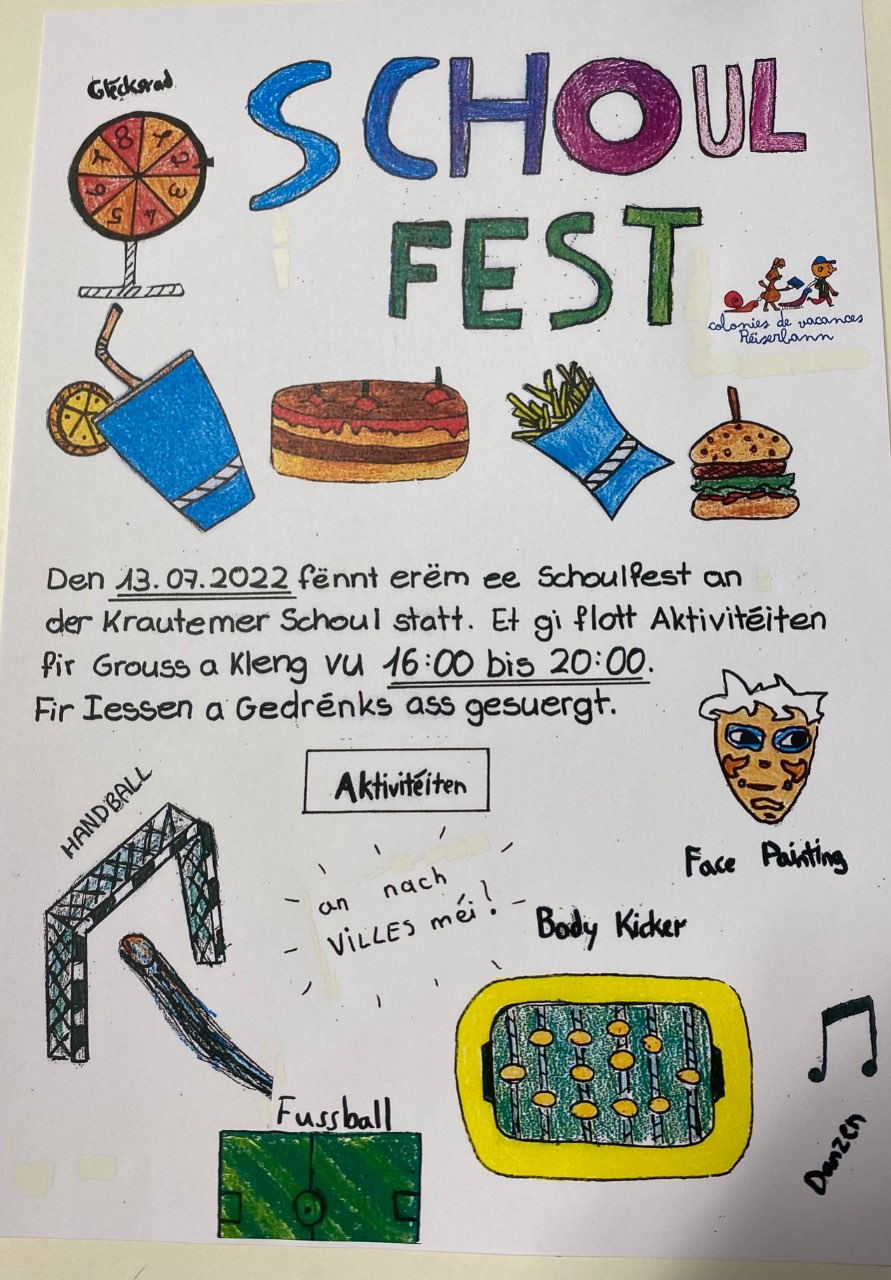 Glécksrad
SCHOUL
FEST
8 1 2 3 4 5 6 7
colonies de vacances
Réiserbann
Den 13.07.2022 fënnt erëm ee Schoulfest an
der Krautemer Schoul statt. Et gi flott Aktivitéiten
fir Grouss a Kleng vu 16:00 bis 20:00.
Fir Iessen a Gedrénks ass gesuergt.
Aktivitéiten
HANDBALL
an nach
VILLES méi!
Face Painting
Body Kicker
Fussball
Danzen